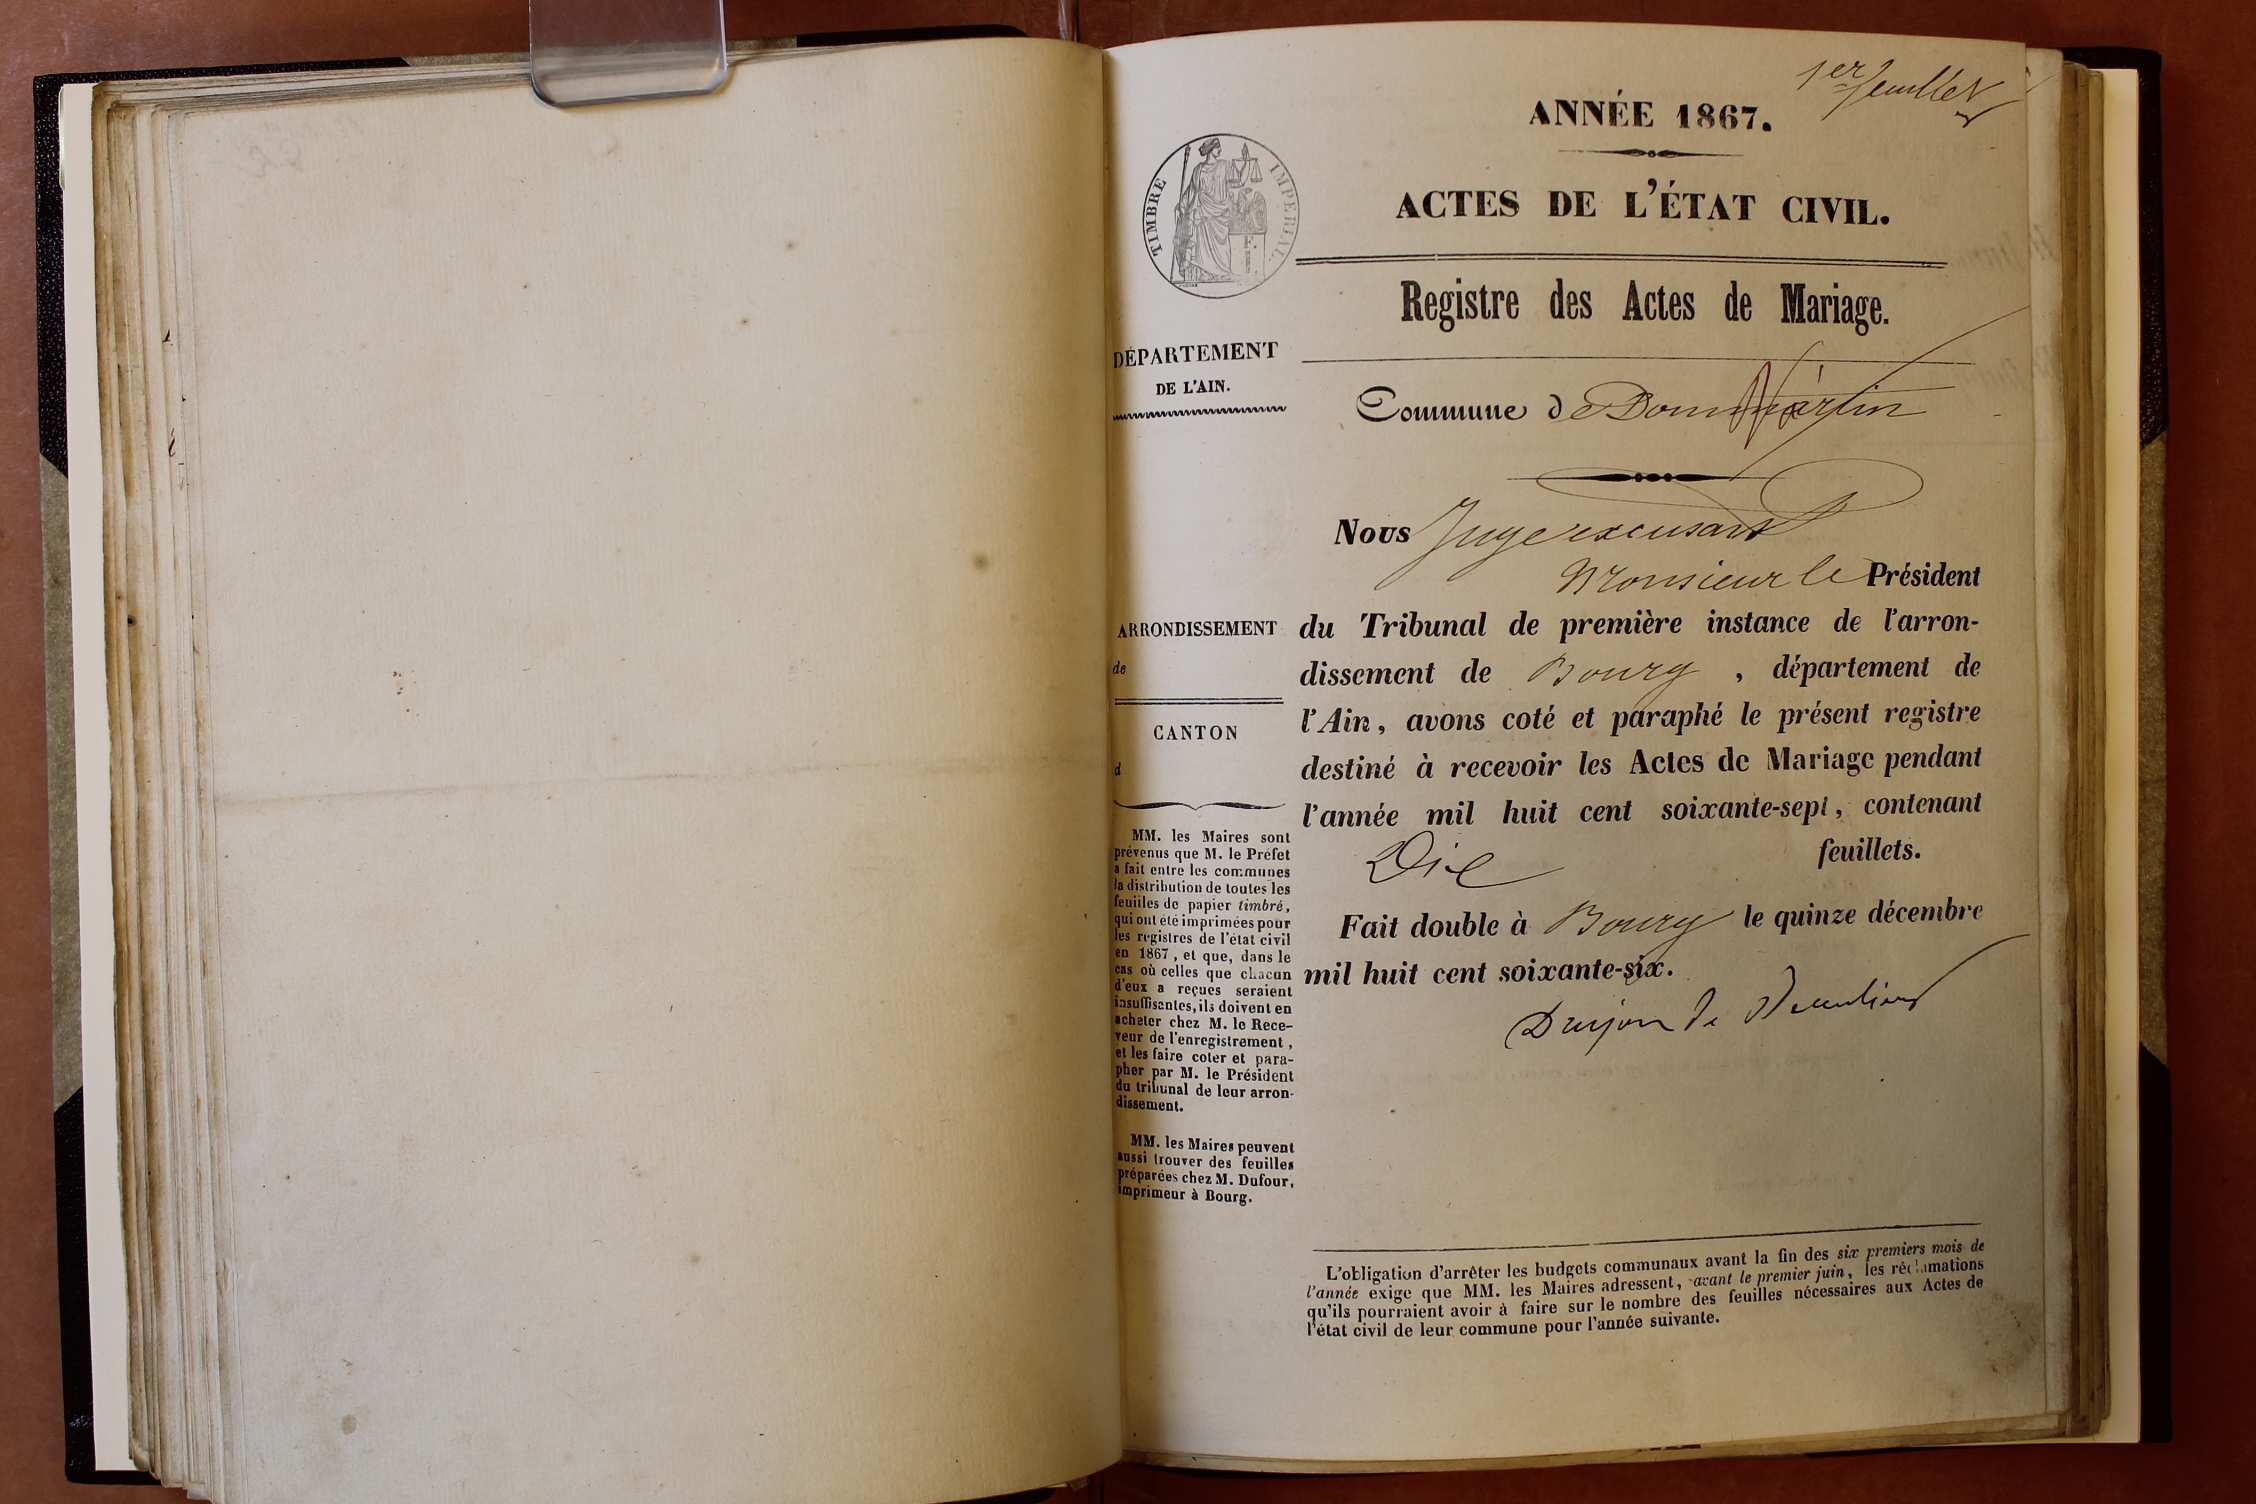 1er feuillet
ANNÉE 1867.
ACTES DE L'ÉTAT CIVIL.
TIMBRE IMPÉRIAL.
Registre des Actes de Mariage.
DÉPARTEMENT
DE L'AIN.
Commune de Dommartin
Nous Juge excusant
Monsieur le Président
ARRONDISSEMENT
de
du Tribunal de première instance de l'arron-
dissement de Bourg, département de
l'Ain, avons coté et paraphé le présent registre
destiné à recevoir les Actes de Mariage pendant
l'année mil huit cent soixante-sept, contenant
Dix feuillets.
Fait double à Bourg le quinze décembre
mil huit cent soixante-six.
Drujon de
CANTON
d
MM. les Maires sont
prévenus que M. le Préfet
a fait entre les communes
la distribution de toutes les
feuilles de papier timbré,
qui ont été imprimées pour
les registres de l'état civil
en 1867, et que, dans le
cas où celles que chacun
d'eux a reçues seraient
insuffisantes, ils doivent en
acheter chez M. le Rece-
veur de l'enregistrement,
et les faire coter et para-
pher par M. le Président
du tribunal de leur arron-
dissement.
MM. les Maires peuvent
aussi trouver des feuilles
préparées chez M. Dufour,
imprimeur à Bourg.
L'obligation d'arrêter les budgets communaux avant la fin des six premiers mois de
l'année exige que MM. les Maires adressent, avant le premier juin, les réclamations
qu'ils pourraient avoir à faire sur le nombre des feuilles nécessaires aux Actes de
l'état civil de leur commune pour l'année suivante.